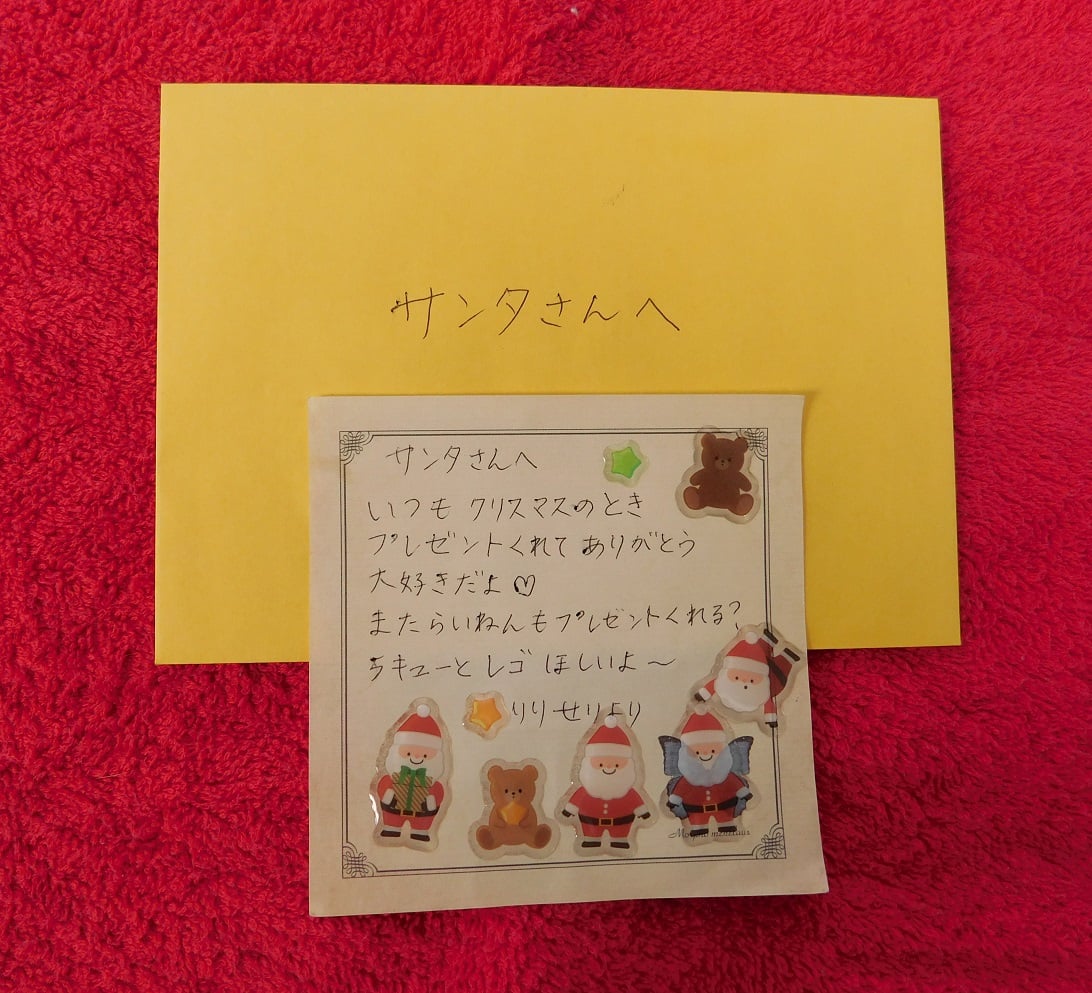 サンタさんへ
サンタさんへ
いつも クリスマスのとき
プレゼントくれて ありがとう
大好きだよ♡
またらいねんもプレゼントくれる?
ラキューと レゴ ほしいよ～
りりせりより